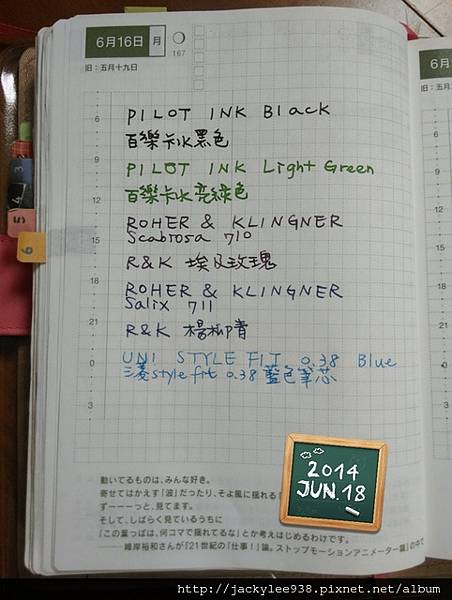 6月16日 月
167
旧：五月十九日
6
PILOT INK Black
百樂卡水黑色
9
PILOT INK Light Green
百樂卡水亮綠色
12
ROHER & KLINGNER
Scabrosa 710
15
R&K 埃及玫瑰
18
ROHER & KLINGNER
Salix 711
21
R&K 楊柳青
0
UNI STYLE FIT 0.38 Blue
三菱style fit 0.38 藍色筆芯
3
動いてるものは、みんな好き。
寄せてはかえす「波」だったり、そよ風に揺れる
ずーーーっと、見てます。
そして、しばらく見ているうちに
「この葉っぱは、何コマで揺れてるな」とか考えはじめるわけです。
――峰岸裕和さんが『21世紀の「仕事!」論。ストップモーションアニメーター篇』の中で
2014
JUN.18
3
4
5
6
6月
旧：五月
http://jackylee938.pixnet.net/album